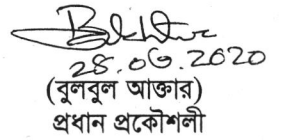 28.06.2020
(বুলবুল আক্তার)
প্রধান প্রকৌশলী